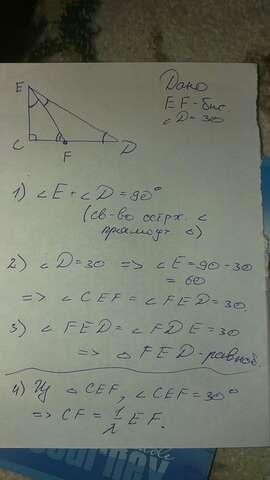 Дано
EF-бис
∠D=30
E
C
F
D
1) ∠E+∠D=90°
(св-во острх. ∠
прямоуг △)
2) ∠D=30 => ∠E=90-30
=60
=> ∠CEF=∠FED=30.
3) ∠FED=∠FDE=30
=> △FED-равноб.
4) Из △CEF, ∠CEF=30°
=> CF=1/2 EF.